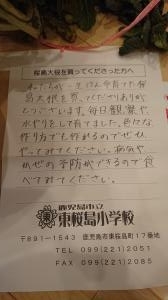 桜島大根を買ってくださった方へ
私たちが一生けん命育てた桜
島大根を買ってくださりありが
とうございます。毎日観察や
水やりをして育てました。色々な
作り方でも作れるのでぜひ
やってみてください。病気や
かぜの予防ができるので食
べてみてください。
鹿児島市立
東桜島小学校
〒891-1543 鹿児島市東桜島町17番地
TEL (099)221-2051
FAX (099)221-2085